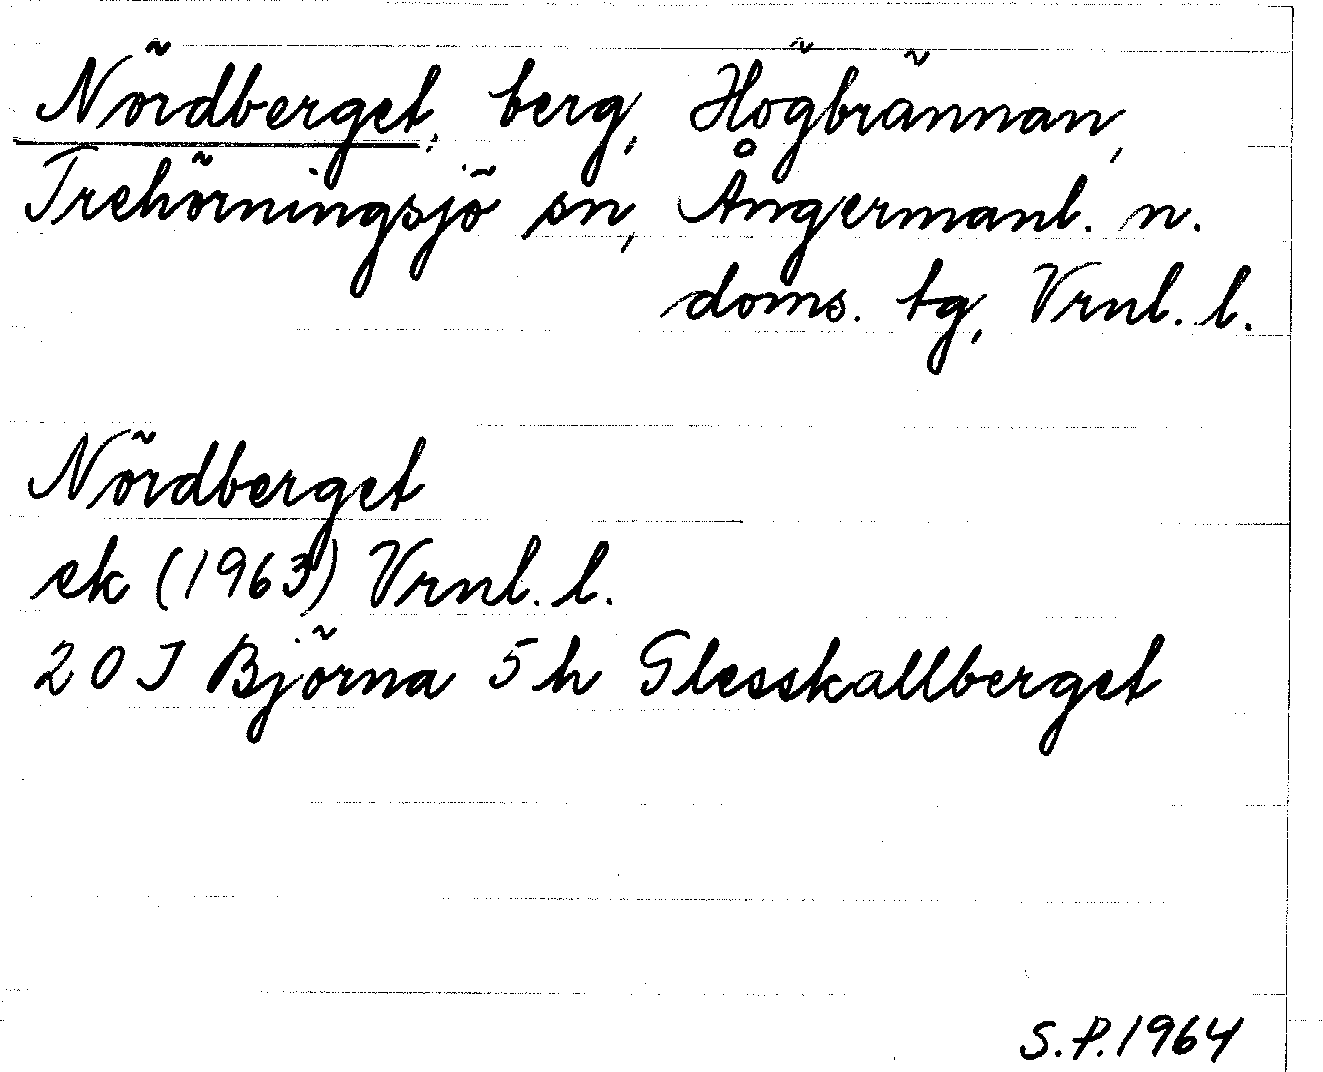 Nördberget, berg, Högbrännan,
Trehörningsjö sn, Ångermanl. n.
doms. tg, Vrnl. l.
Nördberget
ek (1963) Vrnl. l.
20 J Björna 5 h Glesskallberget
S.P. 1964